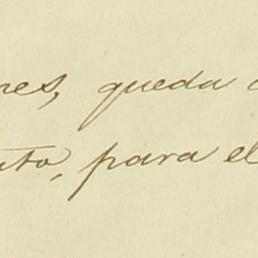 nes, queda
to, para el